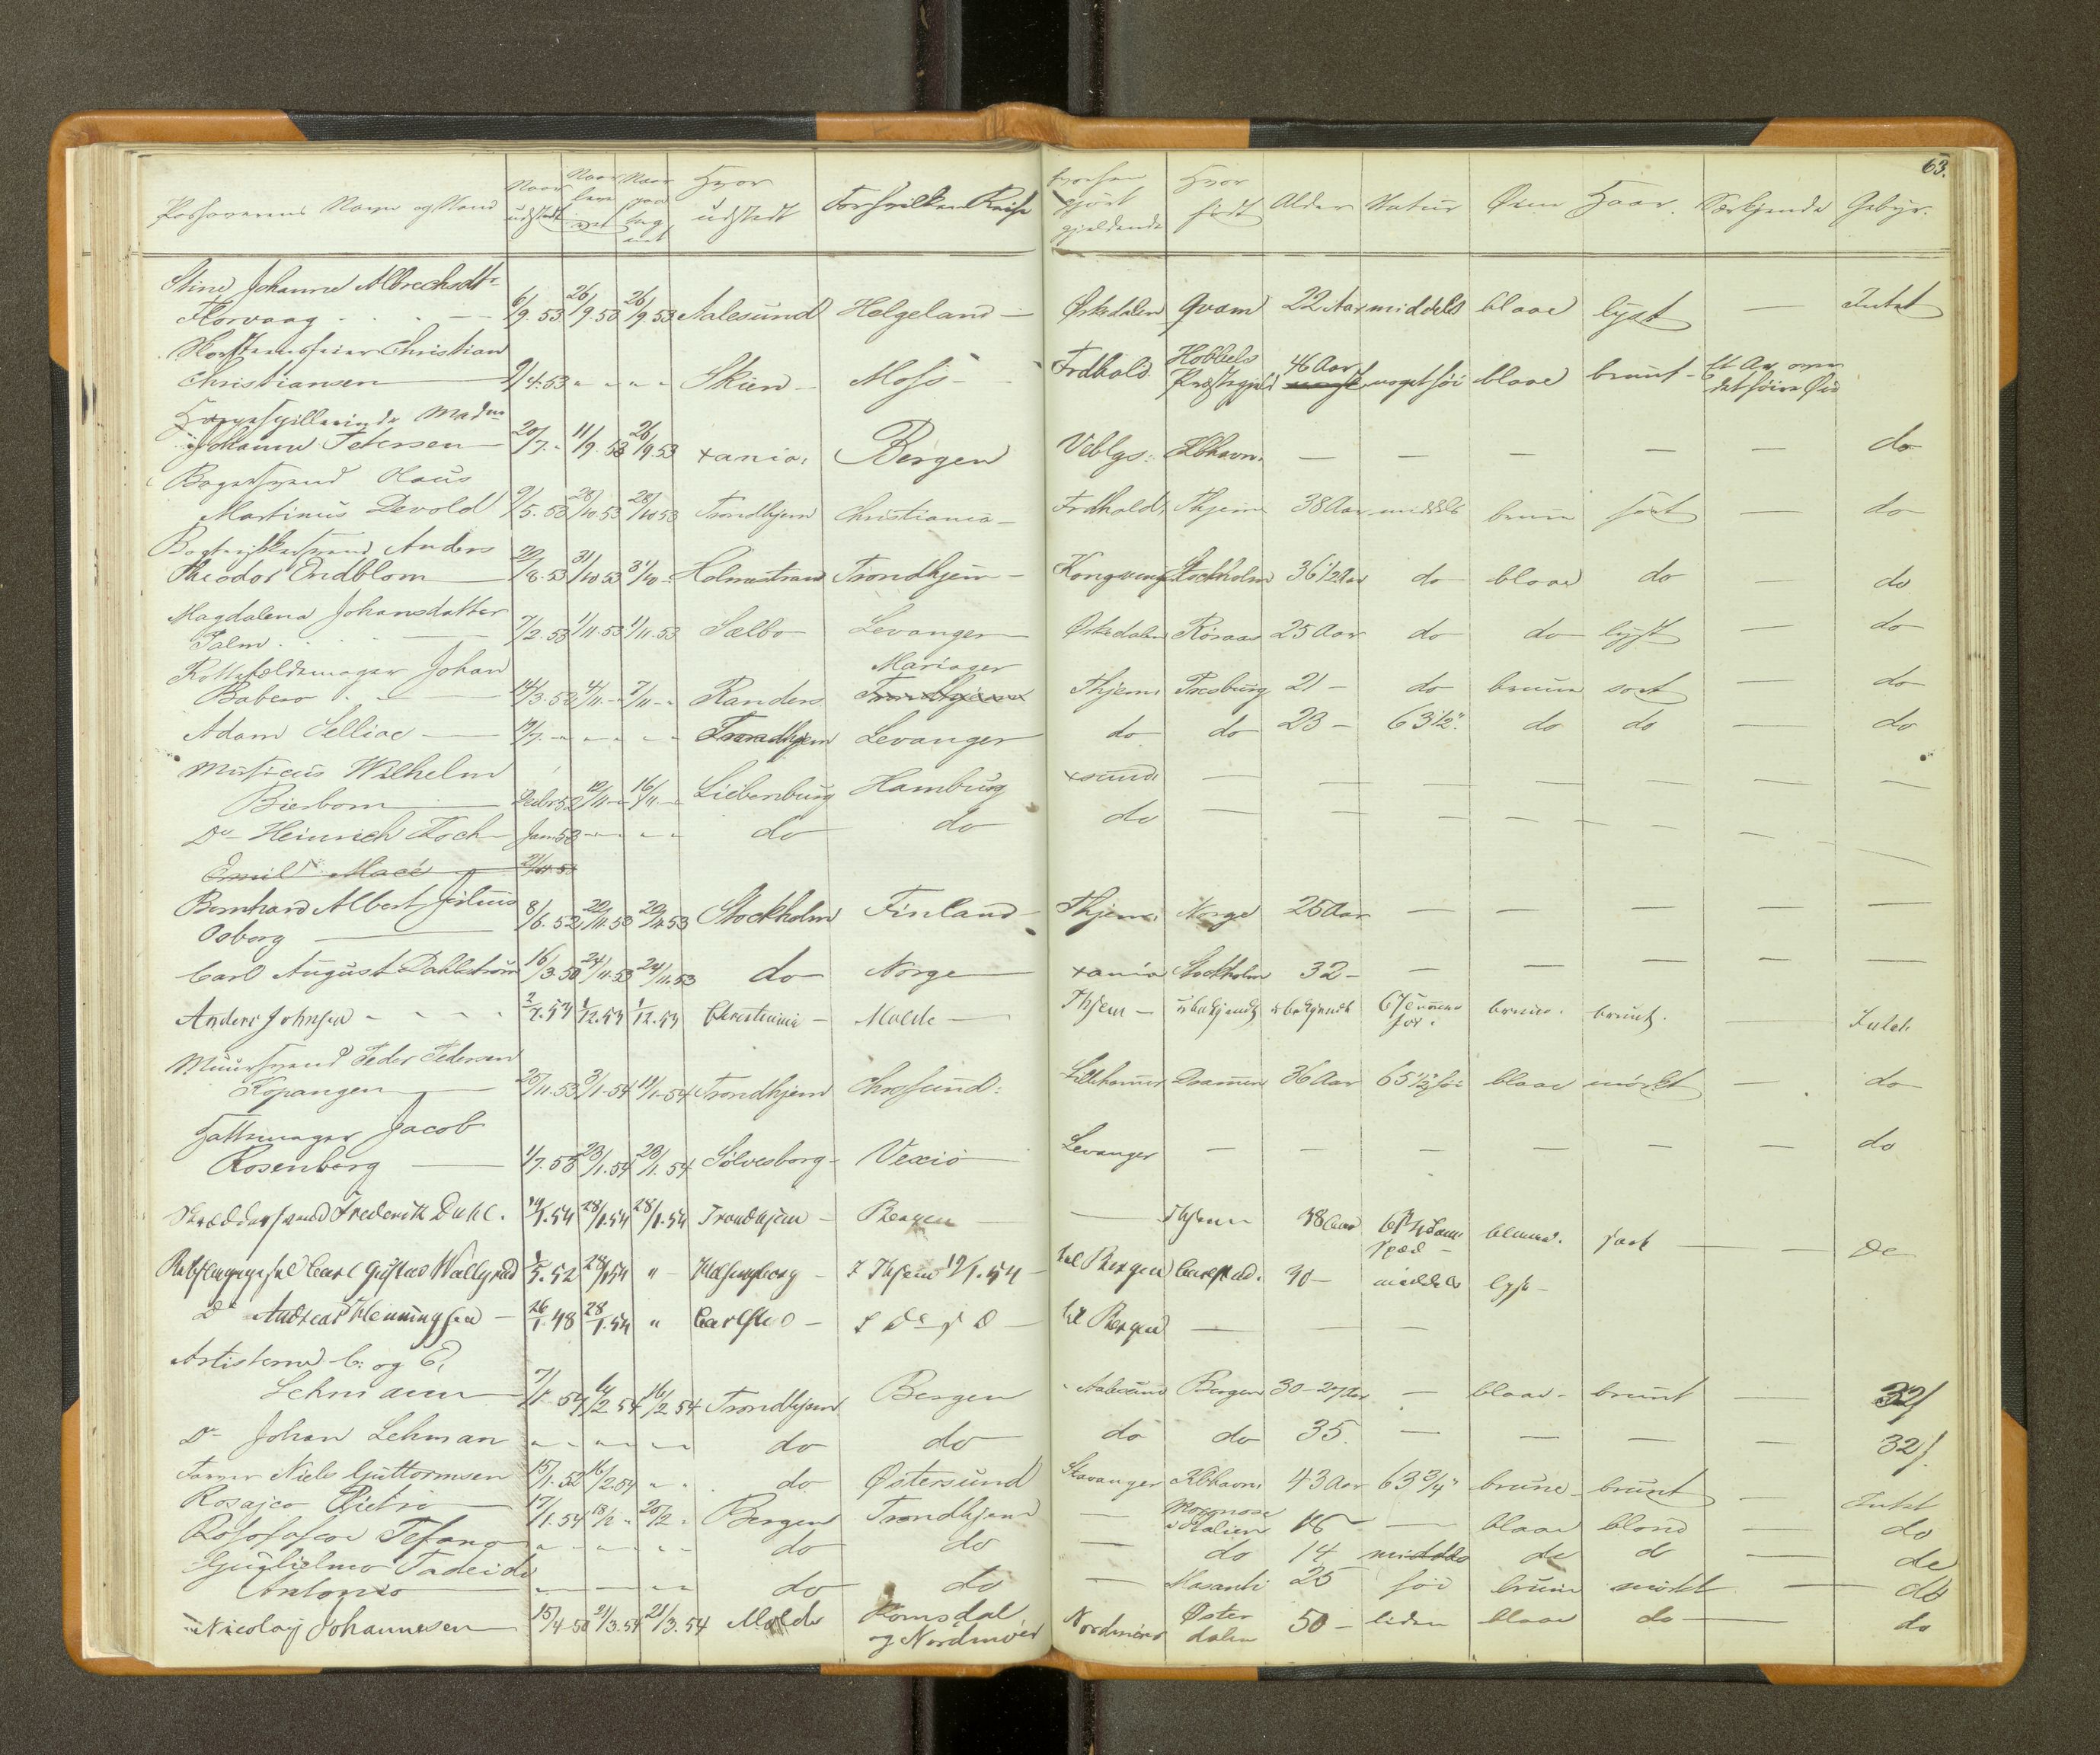 63.
Passerens Navn og Stand Naar udstedt Naar leve ret Naar paa teg net Hvor udstedt For hvilken Reise hvorhen gjort gjældende Hvor født Alder Statur Øine Haar. Særkjende Gebyr.
Stine Johanne Albrechsdtr
Horvaag 6/9.53 26/9.53 26/9.53 Aalesund Helgeland Østerdalen Qvam 22 Aar middels blaae lyst — Intet
Skorsteensfeier Christian
Christiansen 9/4.53 " " " " Skien Moss Frdhald. Hobbels Præstegjeld 46 Aar noget høi blaae brunt Et Ar over det høire Øie
Harpespillerinde Madm
Johanne Petersen 20/7 " 11/9.53 26/9.53 xania. Bergen Veblgs. Kbhavn. — — — — — do
Bagersvend Claus
Martinus Devold 9/5.53 28/10.53 28/10.53 Trondhjem Christiania Frdhald. Thjem 38 Aar middels brune sort — do
Bogtrykkersvend Anders
Theodor Endblom 29/8.53 31/10.53 31/10 " Holmestrand Trondhjem Kongsvinger Stockholm 36 1/2 Aar do blaae do do
Magdalena Johansdatter
Palm 7/2.53 1/11.53 1/11.53 Sælbo Levanger Østerdalen Röraas 25 Aar do do lyst — do
Rottefældemager Johan
Babero 14/3.52 4/11 " 7/11 " Randers Mariager Trondhjem Thjem Presburg 21 — do brune sort — do
Adam Selliac " " " " Trondhjem Levanger do do 23 — 63 1/2" do do — do
Musicus Wilhelm
Bierbom Decbr 52 12/11 " 16/11 " Liebenburg Hamburg xsund. — — — — — — —
Do Heinrich Koch Jan 53 " " " " do do do — — — — — — —
Emil Macé 21/11.53
Bernhard Albert Julius
Osborg 8/6.52 20/11.53 20/11.53 Stockholm Finland Thjem. Norge 25 Aar — — — — —
Carl August Dahlstrøm 16/3.50 24/11.53 24/11.53 do Norge xania Stockholm 32 — — — — — —
Anders Johnsen 1/12.53 1/12.53 Christiania Molde Thjem — ubekjendt ubekjendt brune. brunt. — Intet.
Muursvend Peder Pedersen
Kopangen 25/11.53 3/1.54 11/1.54 Trondhjem Chrsund. Lillehamer Dramen 36 Aar 65 1/2 høi blaae mörkt — do
Hattemager Jacob
Rosenberg 1/7.53 23/1.54 23/1.54 Sölvesborg Vexiö Levanger — — — — — — do
Skræddersvend Frederik Duhl. 19/1.54 28/1.54 28/1.54 Trondhjem Bergen — Thjem 38 Aar sort — — Do
Carl Gustav Wallgren 28/1.54 " Helsingborg F Thjem 19/1.54 til Bergen Carlstad. 30 — middels lyst
Do Andreas Henningsen 26/1.48 28/1.54 " Carlstad til Bergen — — —
Artisterne C: og E.
Lehmann 7/1.54 16/2.54 16/2.54 Trondhjem Bergen Aalesund Bergen 30-27 Aar — blaae brunt — 32/
Do Johan Lehman " " " " " " do do do do 35. — — — — 32/.
Farver Niels Guttormsen 15/1.52 16/2.54 " " do Østersund Stavanger Kbhavn. 43 Aar 63 3/4" brune brunt — Intet
Rosajco Pietro 17/1.54 18/2 " 20/2 " Bergen Trondhjem — i Italien 16 — — blaae blond — do
Tefano " " " " " " do do — do 14 middels do do — do
Guglielmo Tadeide
Antonio " " " " " " do do — Masanti 25 høi brune mörkt — do
Nicolay Johannesen 15/4.50 21/3.54 21/3.54 Molde Romsdal og Nordmör Nordmöre Øster dalen 50 — liden blaae do — do